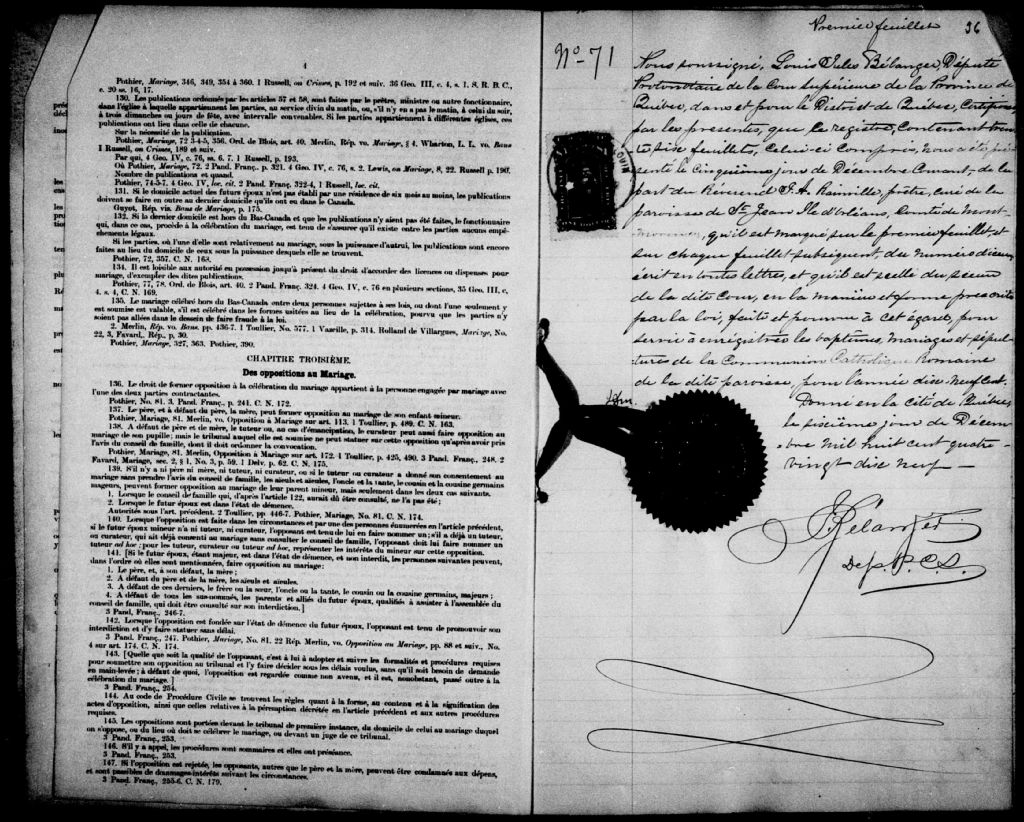 4
Pothier, Mariage, 346, 349, 354 à 360. 1 Russell, on Crimes, p. 192 et suiv. 36 Geo. III, c. 4, s. 1. S. R. B. C.,
c. 20 ss. 16, 17.
130. Les publications ordonnées par les articles 57 et 58, sont faites par le prêtre, ministre ou autre fonctionnaire,
dans l'église à laquelle appartiennent les parties, au service divin du matin, ou, s'il n'y en a pas le matin, à celui du soir,
à trois dimanches ou jours de fête, avec intervalle convenables. Si les parties appartiennent à différentes églises, ces
publications ont lieu dans celle de chacune.
Sur la nécessité de la publication.
Pothier, Mariage, 72 3-4-5, 356. Ord. de Blois, art. 40. Merlin, Rép. vo. Mariage, § 4. Wharton, L. L. vo. Bans
1 Russell, on Crimes, 189 et suiv.
Par qui, 4 Geo. IV, c. 76, ss. 6. 7. 1 Russell, p. 193.
Où Pothier, Mariage, 72. 2 Pand. Franç.. p. 321. 4 Geo. IV, c. 76, s. 2. Lewis, on Mariage, 8, 22. Russell p. 190.
Nombre de publications et quand.
Pothier, 74-5-7. 4 Geo. IV, loc. cit. 2 Pand. Franç. 322-4, 1 Russell, loc. cit.
131. Si le domicile actuel des futurs époux n'est pas établi par une résidence de six mois au moins, les publications
doivent se faire en outre au dernier domicile qu'ils ont eu dans le Canada.
Guyot, Rép. vis. Bans de Mariage, p. 175.
132. Si la dernier domicile est hors du Bas-Canada et que les publications n'y aient pas été faites, le fonctionnaire
qui, dans ce cas, procède à la célébration du mariage, est tenu de s'assurer qu'il existe entre les parties aucuns empê-
chements légaux.
Si les parties, ou l'une d'elle sont relativement au mariage, sous la puissance d'autrui, les publications sont encore
faites au lieu du domicile de ceux sous la puissance desquels elle se trouvent.
Pothier, 72, 357. C. N. 168.
134. Il est loisible aux autorité en possession jusqu'à présent du droit d'accorder des licences ou dispenses pour
mariage, d'exempter des dites publications.
Pothier, 77, 78. Ord. de Blois, art. 40. 2 Pand Franç. 324. 4 Geo. IV, c. 76 en plusieurs sections, 35 Geo. III, c.
4. s. 4, C. N. 169.
135. Le mariage célébré hors du Bas-Canada entre deux personnes sujettes à ses lois, ou dont l'une seulement y
est soumise est valable, s'il est célébré dans les formes usitées au lieu de la célébration, pourvu que les parties n'y
soient pas allées dans le dessein de faire fraude à la loi.
2. Merlin, Rép. vo. Bans. pp. 436-7. 1 Toullier, No. 577. 1 Vazeille, p. 314. Rolland de Villargues, Mariage, No.
22, 3, Favard, Rép., p, 30.
Pothier, Mariage, 327, 363. Pothier, 390.
CHAPITRE TROISIÈME.
Des oppositions au Mariage.
136. Le droit de former opposition à la célébration du mariage appartient à la personne engagée par mariage avec
l'une des deux parties contractantes.
Pothier, No. 81. 3. Pand. Franç., p. 241. C. N. 172.
137. Le père, et à défaut du père, la mère, peut former opposition au mariage de son enfant mineur.
Pothier, Mariage, 81. Merlin, vo. Opposition à Mariage sur art. 113. 1 Toullier, p. 489. C. N. 163.
138. A défaut de père et de mère, le tuteur ou, au cas d'émancipation, le curateur peut aussi faire opposition au
mariage de son pupille; mais le tribunal auquel elle est soumine ne peut statuer sur cette opposition qu'après avoir pris
l'avis du conseil de famille, dont il doit ordonner la convocation.
Pothier, Mariage, 81. Merlin, vo. Opposition à Mariage sur art. 172. 1 Toullier, p. 425, 490. 3 Pand. Franç., 248. 2
Favard, Mariage, sec. 2, § 1, No. 3, p. 59. 1 Delv. p. 62. C. N. 175.
139. S'il n'y a ni père ni mère, ni tuteur, ni curateur, ou si le tuteur ou curateur a donné son consentement au
mariage sans prendre l'avis du conseil de famille, les aïeuls et aïeules, l'oncle et la tante, le cousin et la cousine germains
mageurs, peuvent former opposition au mariage de leur parent mineur, mais seulement dans les deux cas suivants.
1. Lorsque le conseil de famille qui, d'après l'article 122, aurait dû être consulté, ne l'a pas été;
2. Lorsque le futur époux est dans l'état de démence.
Autorités sous l'art. précédent. 2 Toullier, pp 446-7. Pothier, Mariage, No. 81, C. N. 174.
140. Lorsque l'opposition est faite dans les circonstances et par une des personnes énumérées en l'article précédent,
si le futur époux mineur n'a ni tuteur, ni curateur, l'opposant est tenu de lui en faire nommer un; s'il a déjà un tuteur,
ou curateur, qui ait déjà consenti au mariage sans consulter le conseil de famille, l'opposant doit lui faire nommer un
tuteur ad hoc; pour les tuteur, curateur ou tuteur ad hoc, représenter les intérêts du mineur sur cette opposition.
141. [Si le futur époux, étant majeur, est dans l'état de démence, et son interdit, les personnes suivantes peuvent,
dans l'ordre où elles sont mentionnées, faire opposition au mariage:
1. Le père, et, à son défaut, la mère;
2. A défaut du père et de la mère, les aïeuls et aïeules.
3. A défaut de ces derniers, le frère ou la sœur, l'oncle ou la tante, le cousin ou la cousine germains, majeurs;
4. A défaut de tous les sus-nommés, les parents et alliés du futur époux, qualifiés à assister à l'assemblée du
conseil de famille, qui doit être consulté sur son interdiction.]
3 Pand. Franç., 246-7.
142. Lorsque l'opposition est fondée sur l'état de démence du futur époux, l'opposant est tenu de promouvoir son
interdiction et d'y faire statuer sans délai.
3 Pand. Franç., 247. Pothier, Mariage, No. 81. 22 Rép. Merlin, vo. Opposition au Mariage, pp. 88 et suiv., No.
4 sur art. 174. C. N. 174.
143. [Quelle que soit la qualité de l'opposant, c'est à lui à adopter et suivre les formalités et procédures requises
pour soumettre son opposition au tribunal et l'y faire décider sous les délais voulus, sans qu'il soit besoin de demande
en main-levée; à défaut de quoi, l'opposition est regardée comme non avenu, et il est, nonobstant, passé outre à la
célébration du mariage.]
3 Pand. Franç., 254.
144. Au code de Procédure Civile se trouvent les règles quant à la forme, au contenu et à la signification des
actes d'opposition, ainsi que celles relatives à la péremption décrétée en l'article précédent et aux autres procédures
requises.
145. Les oppositions sont portées devant le tribunal de première instance, du domicile de celui au mariage duquel
on s'oppose, ou du lieu où doit se célébrer le mariage, ou devant un juge de ce tribunal.
3 Pand. Franç., 253.
146. S'il y a appel, les procédures sont sommaires et elles ont préséance.
3 Pand. Franç., 253.
147. Si l'opposition est rejetée, les opposants, autres que le père et la mère, peuvent être condamnés aux dépens,
et sont passibles de dommages-intérêts suivant les circonstances.
3 Pand. Franç., 255-6. C. N. 179.
Premier feuillet 36
No 71
Nous soussigné, Louis Jules Bélanger, Député
Protonotaire de la Cour Supérieure de la Province de
Québec, dans et pour le District de Québec, Certifions
par les présentes, que ce registre, contenant tren
te six feuillets, celui-ci compris, nous a été pré
senté le Cinquième jour de Décembre Courant, de la
part du Révérend F. A. Rainville, prêtre, curé de la
paroisse de St Jean Ile d'Orléans, Comté de Mont-
morency, qu'il est marqué sur le premier feuillet et
sur chaque feuillet subséquent, du numéro d'iceux,
écrit en toutes lettres, et qu'il est scellé du sceau
de la dite Cour, en la manière et forme prescrite
par la loi, faite et pourvue à cet égard, pour
servir à enregistrer les baptêmes, mariages et sépul-
tures de la Communion Catholique Romaine
de la dite paroisse, pour l'année dix-neuf cent.
Donné en la Cité de Québec
le sixième jour de Décem
bre mil huit cent quatre
vingt dix neuf —
LJBelanger
Dep. P. C. S.